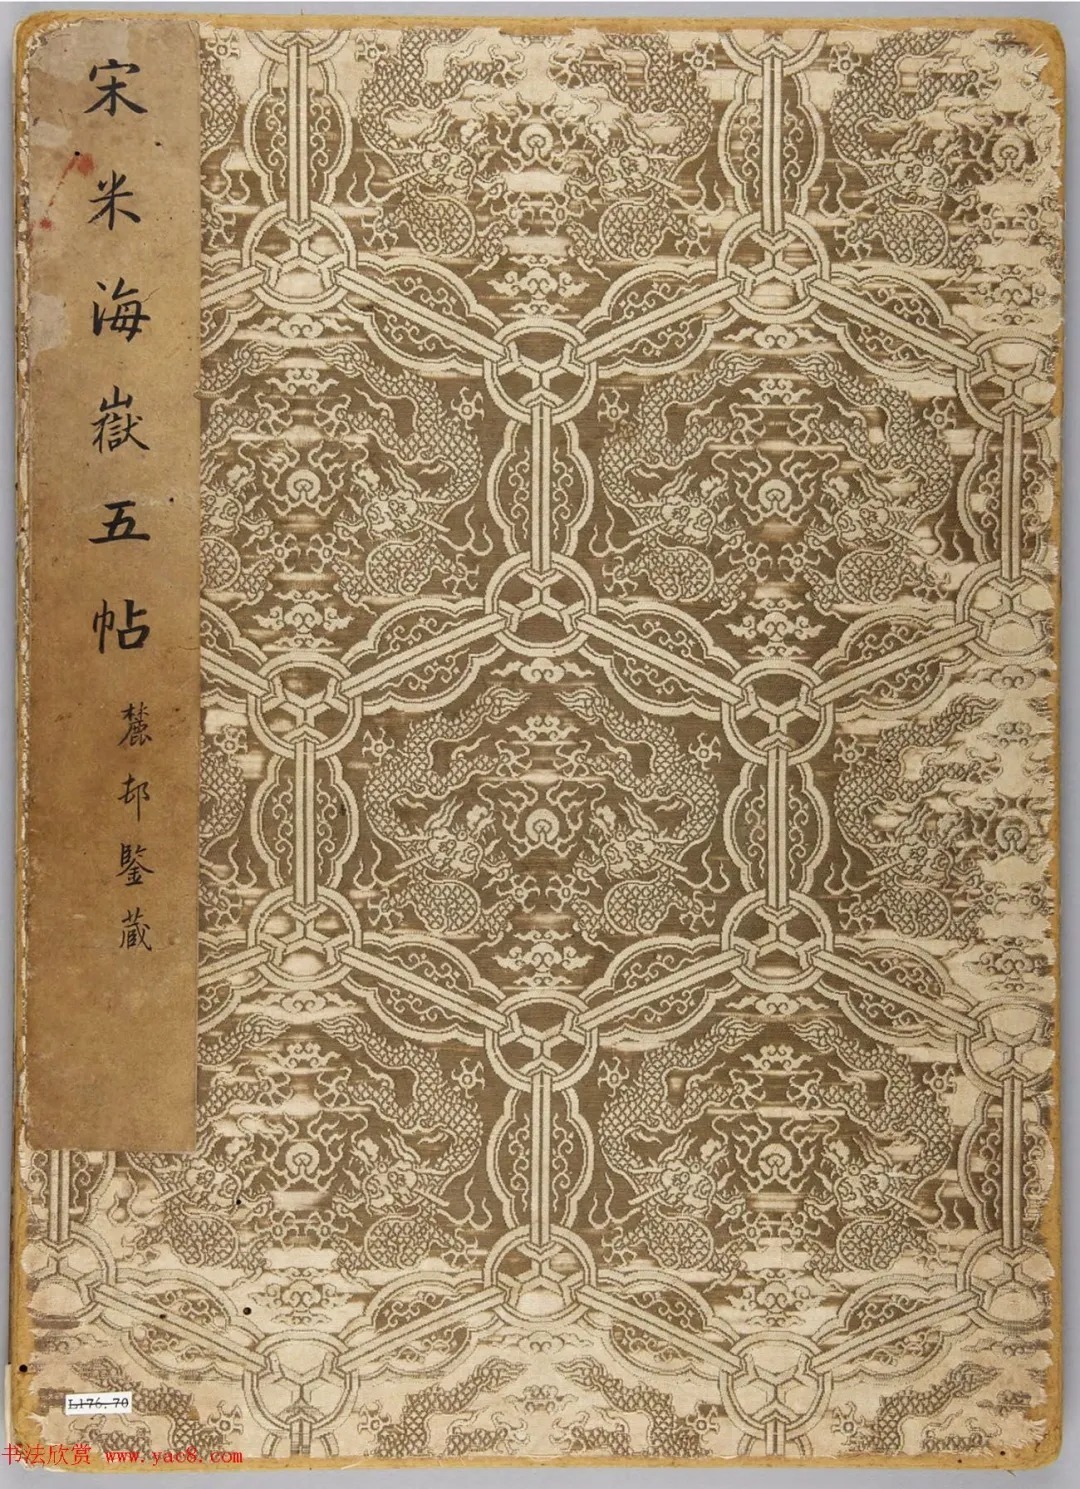 宋米海嶽五帖
麓邨鑒藏
L176.70
书法欣赏 www.yac8.com